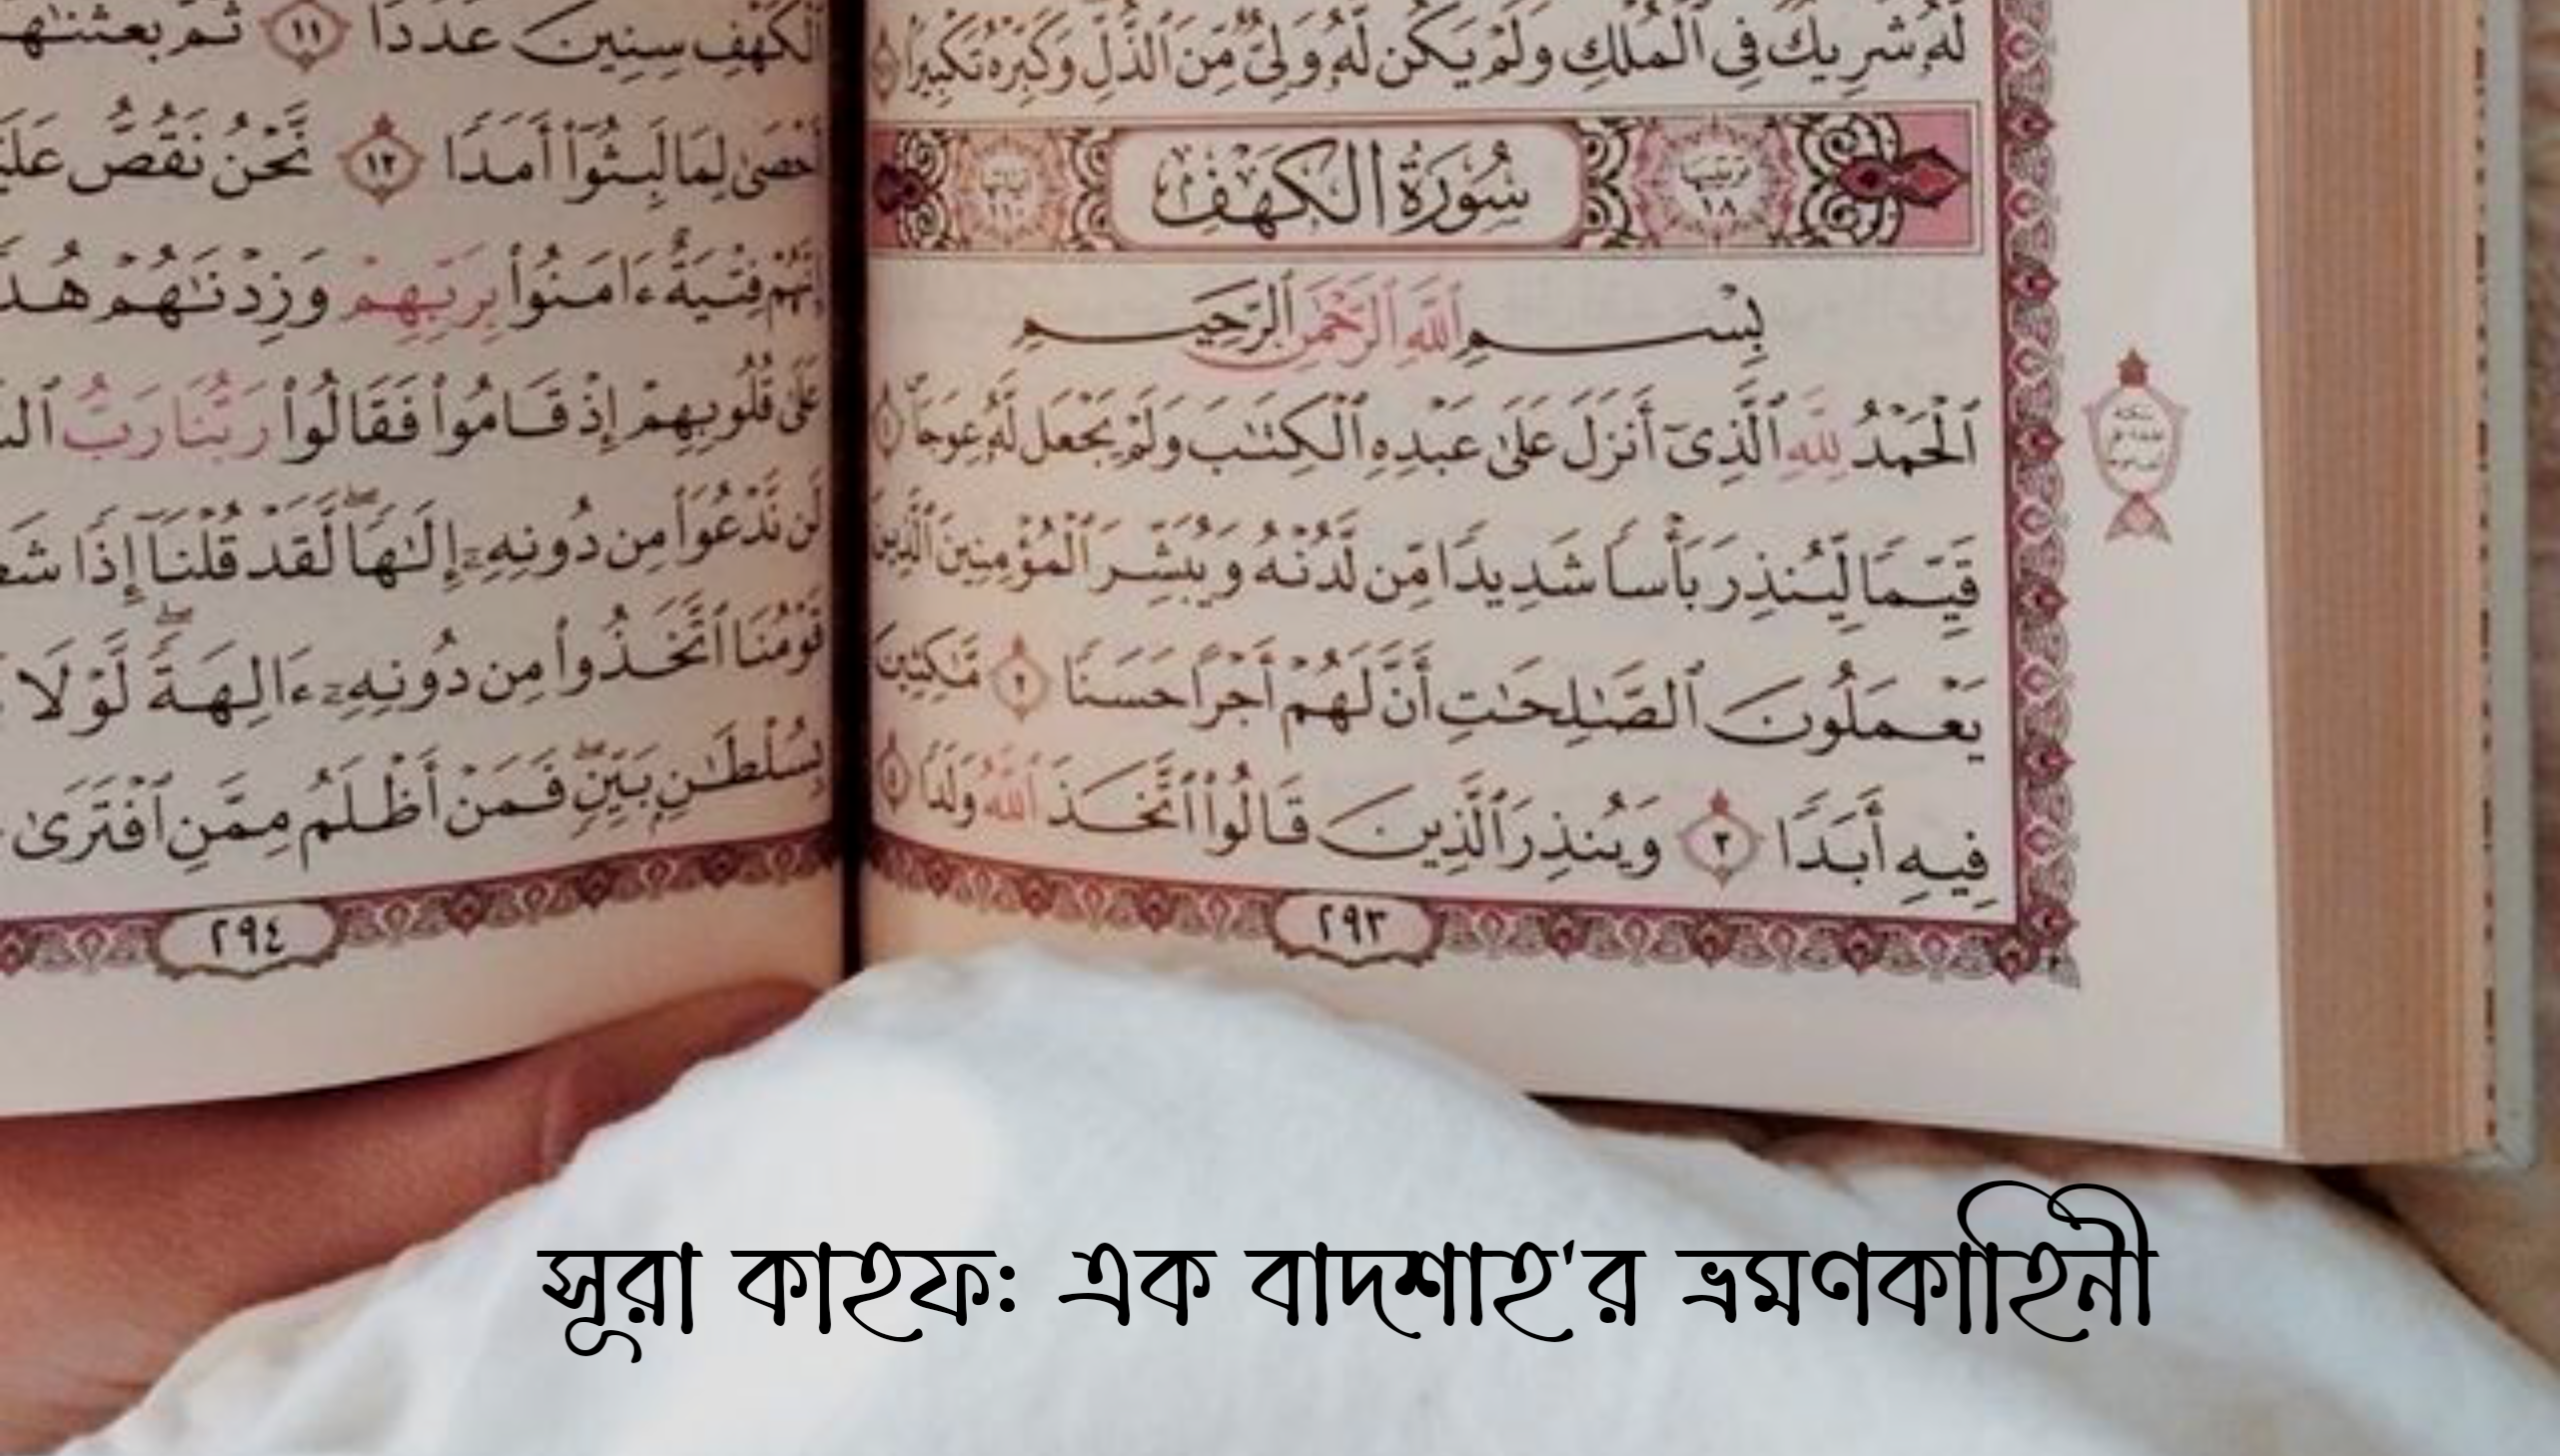 لَهُۥ شَرِيكٌ فِى ٱلْمُلْكِ وَلَمْ يَكُن لَّهُۥ وَلِىٌّ مِّنَ ٱلذُّلِّ وَكَبِّرْهُ تَكْبِيرًۢا
ترتيبها ١٨
سُورَةُ الكَهْفِ
آياتها ١١٠
بِسْمِ ٱللَّهِ ٱلرَّحْمَٰنِ ٱلرَّحِيمِ
ٱلْحَمْدُ لِلَّهِ ٱلَّذِىٓ أَنزَلَ عَلَىٰ عَبْدِهِ ٱلْكِتَٰبَ وَلَمْ يَجْعَل لَّهُۥ عِوَجَا ۜ ١
قَيِّمًا لِّيُنذِرَ بَأْسًا شَدِيدًا مِّن لَّدُنْهُ وَيُبَشِّرَ ٱلْمُؤْمِنِينَ ٱلَّذِينَ
يَعْمَلُونَ ٱلصَّٰلِحَٰتِ أَنَّ لَهُمْ أَجْرًا حَسَنًا ٢ مَّٰكِثِينَ
فِيهِ أَبَدًا ٣ وَيُنذِرَ ٱلَّذِينَ قَالُوا۟ ٱتَّخَذَ ٱللَّهُ وَلَدًا ٤
٢٩٣
ٱلْكَهْفِ سِنِينَ عَدَدًا ١١ ثُمَّ بَعَثْنَٰهُمْ
أَحْصَىٰ لِمَا لَبِثُوٓا۟ أَمَدًا ١٢ نَّحْنُ نَقُصُّ
إِنَّهُمْ فِتْيَةٌ ءَامَنُوا۟ بِرَبِّهِمْ وَزِدْنَٰهُمْ
عَلَىٰ قُلُوبِهِمْ إِذْ قَامُوا۟ فَقَالُوا۟ رَبُّنَا رَبُّ
لَن نَّدْعُوَا۟ مِن دُونِهِۦٓ إِلَٰهًا ۖ لَّقَدْ قُلْنَآ إِذًا
قَوْمُنَا ٱتَّخَذُوا۟ مِن دُونِهِۦٓ ءَالِهَةً ۖ لَّوْلَا
بِسُلْطَٰنٍۭ بَيِّنٍ ۖ فَمَنْ أَظْلَمُ مِمَّنِ ٱفْتَرَىٰ
٢٩٤
সূরা কাহফ: এক বাদশাহ'র ভ্রমণকাহিনী